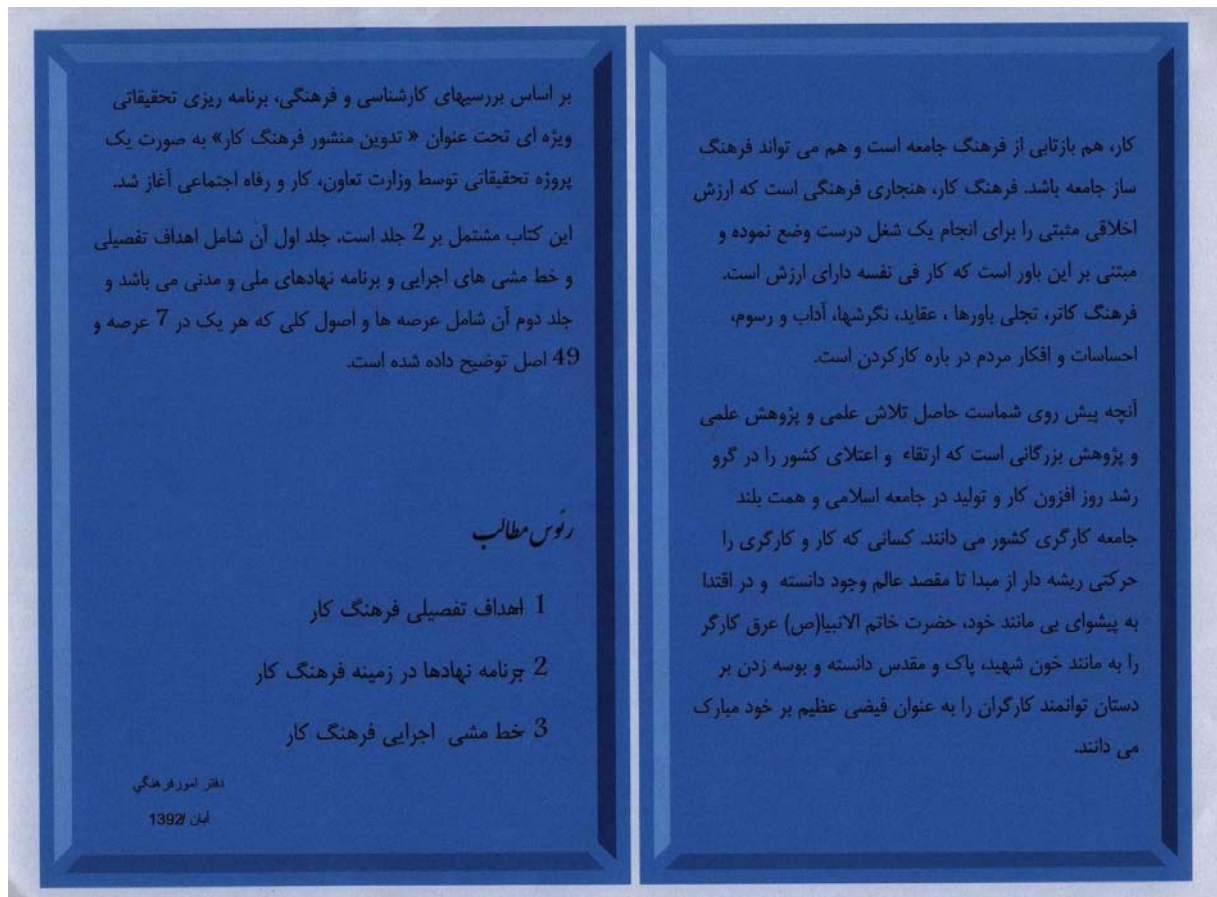 کار، هم بازتابی از فرهنگ جامعه است و هم می تواند فرهنگ
ساز جامعه باشد. فرهنگ کار، هنجاری فرهنگی است که ارزش
اخلاقی مثبتی را برای انجام یک شغل درست وضع نموده و
مبتنی بر این باور است که کار فی نفسه دارای ارزش است.
فرهنگ کاتر، تجلی باورها ، عقاید، نگرشها، آداب و رسوم،
احساسات و افکار مردم در باره کارکردن است.
آنچه پیش روی شماست حاصل تلاش علمی و پژوهش علمی
و پژوهش بزرگانی است که ارتقاء و اعتلای کشور را در گرو
رشد روز افزون کار و تولید در جامعه اسلامی و همت بلند
جامعه کارگری کشور می دانند. کسانی که کار و کارگری را
حرکتی ریشه دار از مبدا تا مقصد عالم وجود دانسته و در اقتدا
به پیشوای بی مانند خود، حضرت خاتم الانبیا(ص) عرق کارگر
را به مانند خون شهید، پاک و مقدس دانسته و بوسه زدن بر
دستان توانمند کارگران را به عنوان فیضی عظیم بر خود مبارک
می دانند.
بر اساس بررسیهای کارشناسی و فرهنگی، برنامه ریزی تحقیقاتی
ویژه ای تحت عنوان « تدوین منشور فرهنگ کار» به صورت یک
پروژه تحقیقاتی توسط وزارت تعاون، کار و رفاه اجتماعی آغاز شد.
این کتاب مشتمل بر 2 جلد است. جلد اول آن شامل اهداف تفصیلی
و خط مشی های اجرایی و برنامه نهادهای ملی و مدنی می باشد و
جلد دوم آن شامل عرصه ها و اصول کلی که هر یک در 7 عرصه و
49 اصل توضیح داده شده است.
رئوس مطالب
1 اهداف تفصیلی فرهنگ کار
2 برنامه نهادها در زمینه فرهنگ کار
3 خط مشی اجرایی فرهنگ کار
دفتر امورفرهنگي
آبان 1392